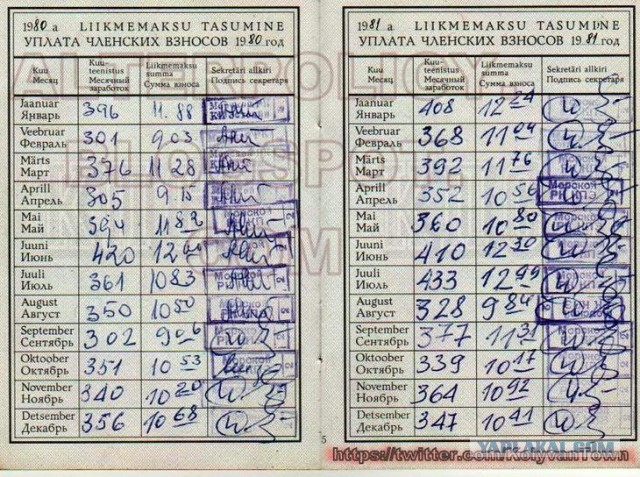 1980 a. LIIKMEMAKSU TASUMINE
УПЛАТА ЧЛЕНСКИХ ВЗНОСОВ 1980 год
Kuu Kuu-teenistus Liikmemaksu summa Sekretäri allkiri
Месяц Месячный заработок Сумма взноса Подпись секретаря
Jaanuar 396 11.88
Январь
Veebruar 301 9.03
Февраль
Märts 376 11 28
Март
Aprill 305 9.15
Апрель
Mai 394 11 82
Май
Juuni 420 12 60
Июнь
Juuli 361 10 83
Июль
August 350 10 50
Август
September 302 9 06
Сентябрь
Oktoober 351 10 53
Октябрь
November 340 10 20
Ноябрь
Detsember 356 10 68
Декабрь
5
1981 a. LIIKMEMAKSU TASUMINE
УПЛАТА ЧЛЕНСКИХ ВЗНОСОВ 1981 год
Kuu Kuu-teenistus Liikmemaksu summa Sekretäri allkiri
Месяц Месячный заработок Сумма взноса Подпись секретаря
Jaanuar 408 12 24
Январь
Veebruar 368 11 04
Февраль
Märts 392 11 76
Март
Aprill 352 10 56
Апрель
Mai 360 10 80
Май
Juuni 410 12 30
Июнь
Juuli 433 12 99
Июль
August 328 9 84
Август
September 377 11 31
Сентябрь
Oktoober 339 10 17
Октябрь
November 364 10 92
Ноябрь
Detsember 347 10 41
Декабрь
YAPLAKAL.COM
https://twitter.com/KolyvanTown